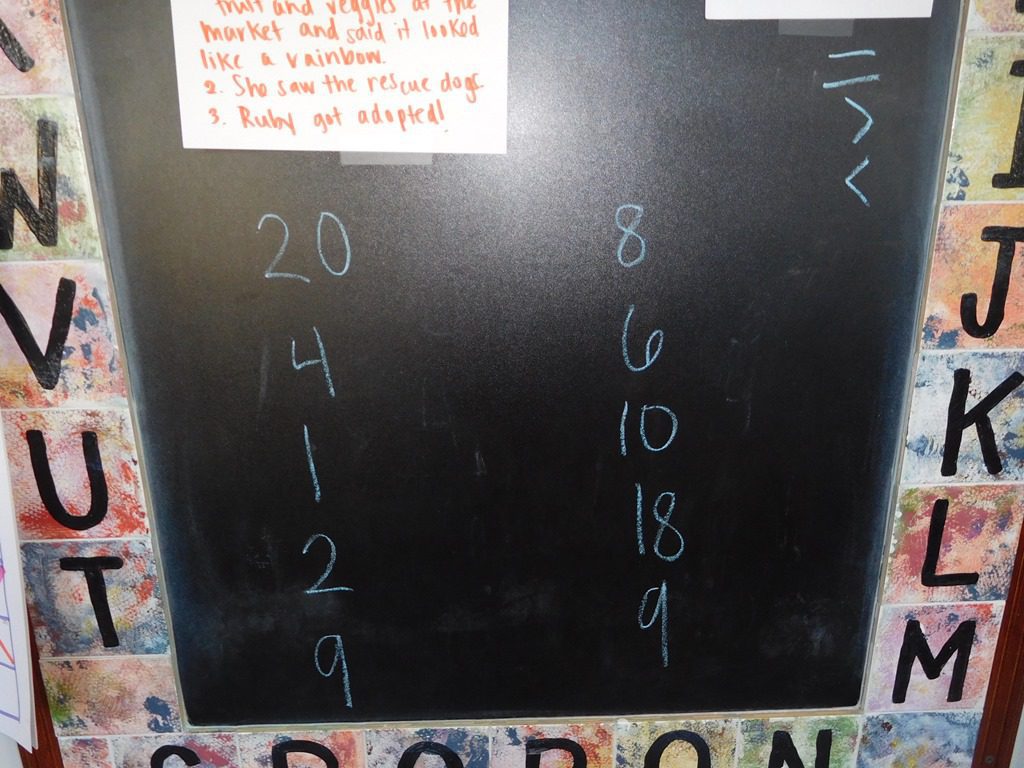 fruit and veggies at the
market and said it looked
like a rainbow.
2. She saw the rescue dogs.
3. Ruby got adopted!
=
>
<
20 8
4 6
1 10
2 18
9 9
N
V
U
T
J
K
L
M